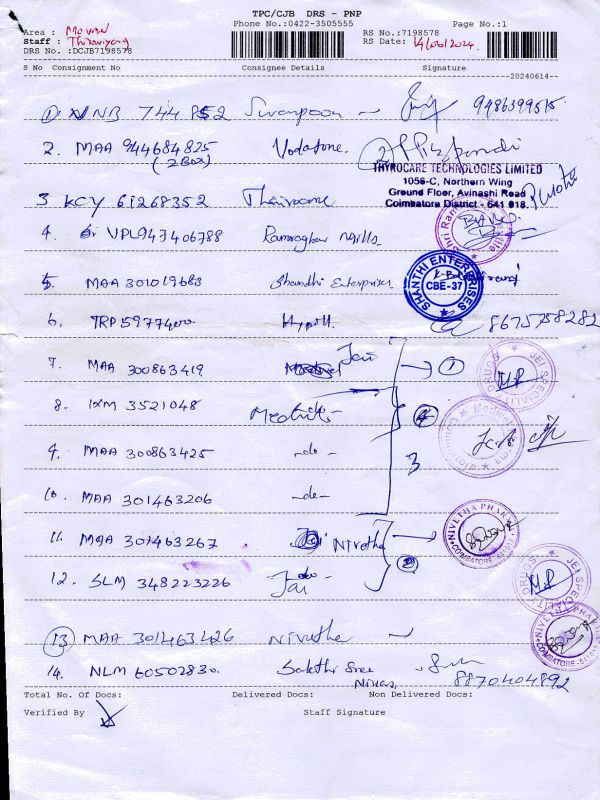 TPC/CJB DRS - PNP
Phone No.:0422-3505555 Page No.:1
Area : Movan
Staff : Thiraviyang RS No.:7198578
DRS No. :DCJB7198578 RS Date: 14/06/2024
S No Consignment No Consignee Details Signature
20240614
1 NNB 744852 9486399515
2. MAA 944684825 Vodafone
(2Box)
THYROCARE TECHNOLOGIES LIMITED
1056-C, Northern Wing
Ground Floor, Avinashi Road
Coimbatore District - 641 018.
3 KCY 61268352 Thairocare
4. VPL947406788 Ramraghav Mills
5. MAA 301019683 Shandhi Enterprises
SHANTHI ENTERPRISES CBE-37
6. TRP 5977400 8675758282
7. MAA 300863419 Jai 1
JEI SPECIALITY DRUGS
8. IXM 3521048
9. MAA 300863425 -do-
3
10. MAA 301463206 -do-
11. MAA 301463267 Nivetha
NIVETHA PHARMA COIMBATORE
12. SLM 348223226 Jai 2
JEI SPECIALITY DRUGS
13 MAA 301463426 Nivethe
NIVETHA PHARMA COIMBATORE
14. NLM 60502830. Sakthi Sree
Nivas, 8870404892
Total No. Of Docs: Delivered Docs: Non Delivered Docs:
Verified By Staff Signature